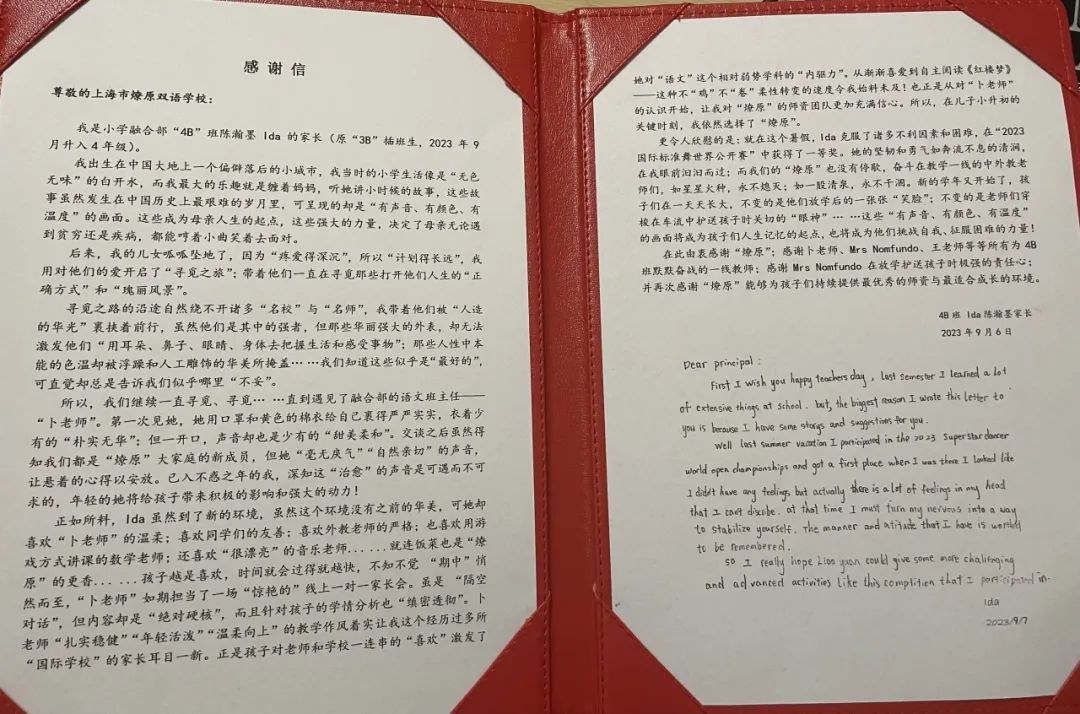 感谢信
尊敬的上海市燎原双语学校：
我是小学融合部“4B”班陈瀚墨 Ida 的家长（原“3B”插班生，2023 年 9
月升入 4 年级）。
我出生在中国大地上一个偏僻落后的小城市，我当时的小学生活像是“无色
无味”的白开水，而我最大的乐趣就是缠着妈妈，听她讲小时候的故事，这些故
事虽然发生在中国历史上最艰难的岁月里，可呈现的却是“有声音、有颜色、有
温度”的画面。这些成为母亲人生的起点，这些强大的力量，决定了母亲无论遇
到贫穷还是疾病，都能哼着小曲笑着去面对。
后来，我的儿女呱呱坠地了，因为“疼爱得深沉”，所以“计划得长远”，我
用对他们的爱开启了“寻觅之旅”；带着他们一直在寻觅那些打开他们人生的“正
确方式”和“瑰丽风景”。
寻觅之路的沿途自然绕不开诸多“名校”与“名师”，我带着他们被“人造
的华光”裹挟着前行，虽然他们是其中的强者，但那些华丽强大的外表，却无法
激发他们“用耳朵、鼻子、眼睛、身体去把握生活和感受事物”；那些人性中本
能的色温却被浮躁和人工雕饰的华美所掩盖……我们知道这些似乎是“最好的”，
可直觉却总是告诉我们似乎哪里“不妥”。
所以，我们继续一直寻觅、寻觅……直到遇见了融合部的语文班主任——
“卜老师”。第一次见她，她用口罩和黄色的棉衣给自己裹得严严实实，衣着少
有的“朴实无华”；但一开口，声音却也是少有的“甜美柔和”。交谈之后虽然得
知我们都是“燎原”大家庭的新成员，但她“毫无戾气”“自然亲切”的声音，
让悬着的心得以安放。已入不惑之年的我，深知这“治愈”的声音是可遇而不可
求的，年轻的她将给孩子带来积极的影响和强大的动力！
正如所料，Ida 虽然到了新的环境，虽然这个环境没有之前的华美，可她却
喜欢“卜老师”的温柔；喜欢同学们的友善；喜欢外教老师的严格；也喜欢用游
戏方式讲课的数学老师；还喜欢“很漂亮”的音乐老师......就连饭菜也是“燎
原”的更香......孩子越是喜欢，时间就会过得就越快，不知不觉“期中”悄
然而至，“卜老师”如期担当了一场“惊艳的”线上一对一家长会。虽是“隔空
对话”，但内容却是“绝对硬核”，而且针对孩子的学情分析也“缜密透彻”。卜
老师“扎实稳健”“年轻活泼”“温柔向上”的教学作风着实让我这个经历过多所
“国际学校”的家长耳目一新。正是孩子对老师和学校一连串的“喜欢”激发了
她对“语文”这个相对弱势学科的“内驱力”。从渐渐喜爱到自主阅读《红楼梦》
——这种不“鸡”不“卷”柔性转变的速度令我始料未及！也正是从对“卜老师”
的认识开始，让我对“燎原”的师资团队更加充满信心。所以，在儿子小升初的
关键时刻，我依然选择了“燎原”。
更令人欣慰的是：就在这个暑假，Ida 克服了诸多不利因素和困难，在“2023
国际标准舞世界公开赛”中获得了一等奖。她的坚韧和勇气如奔流不息的清涧，
在我眼前汩汩而过；而我们的“燎原”也没有停歇，奋斗在教学一线的中外教老
师们，如星星火种，永不熄灭；如一股清泉，永不干涸。新的学年又开始了，孩
子们在一天天长大，不变的是他们放学后的一张张“笑脸”；不变的是老师们穿
梭在车流中护送孩子时关切的“眼神”……这些“有声音、有颜色、有温度”
的画面将成为孩子们人生记忆的起点，也将成为他们挑战自我、征服困难的力量！
在此由衷感谢“燎原”；感谢卜老师、Mrs Nomfundo、王老师等等所有为 4B
班默默奋战的一线教师；感谢 Mrs Nomfundo 在放学护送孩子时极强的责任心；
并再次感谢“燎原”能够为孩子们持续提供最优秀的师资与最适合成长的环境。
4B 班 Ida 陈瀚墨家长
2023 年 9 月 6 日
Dear principal：
First I wish you happy teachers day, last semester I learned a lot
of extensive things at school. but, the biggest reason I wrote this letter to
you is because I have some storys and suggestions for you.
Well last summer vacation I participated in the 2023 Superstar dancer
world open championships and got a first place when I was there I looked like
I didn't have any feelings but actually there is a lot of feelings in my head
that I can't discribe. at that time I must turn my nervous into a way
to stabilize yourself. The manner and atitude that I have is worthy
to be remembered.
so I really hope Liao yuan could give some more challenging
and advanced activities like this complition that I participated in.
Ida
2023/9/7